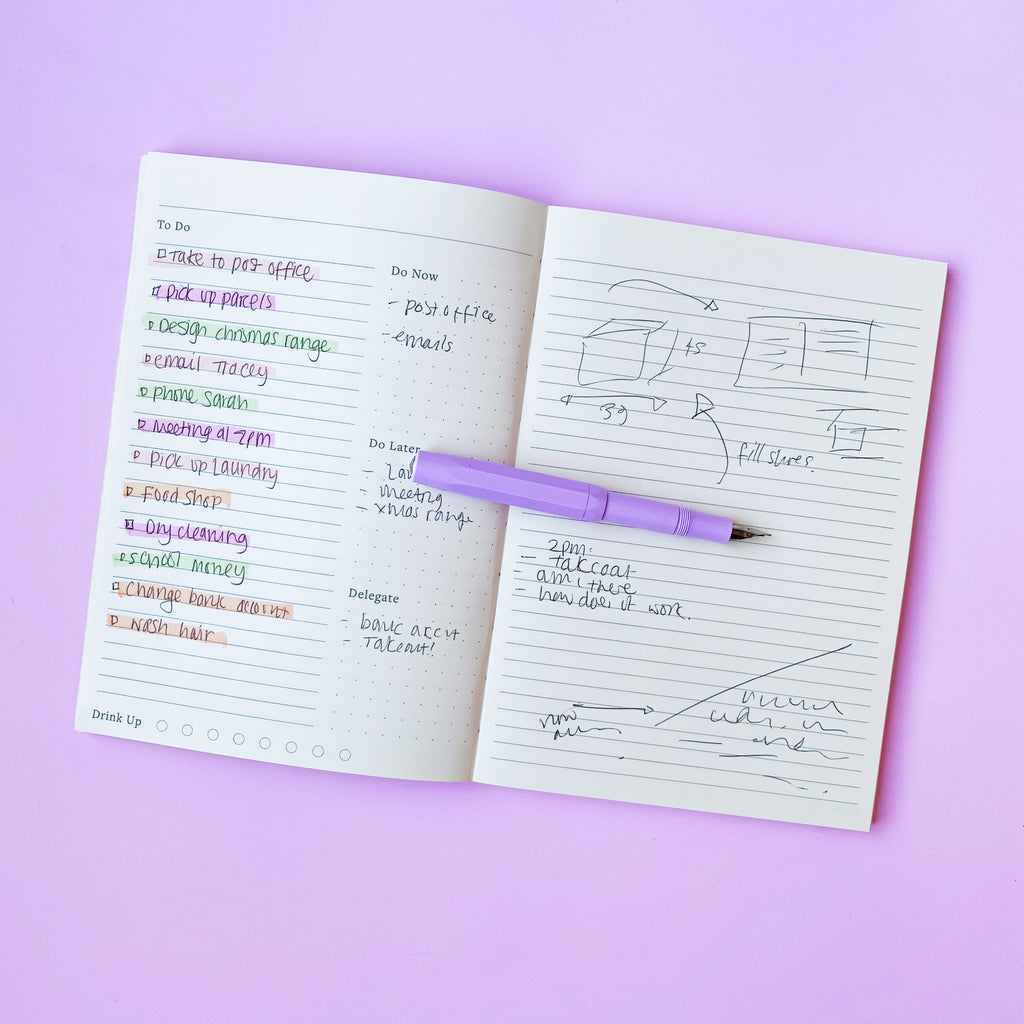 To Do
Take to post office
Pick up parcels
Design chrismas range
email Tracey
phone sarah
Meeting at 2pm
pick up laundry
Food shop
Dry cleaning
school money
Change bank account
wash hair
Drink Up
Do Now
- post office
- emails
Do Later
- meeting
- xmas range
Delegate
- bank acct
- Takeout!
45
39
fill shoes.
2pm:
am i there
- how does it work.